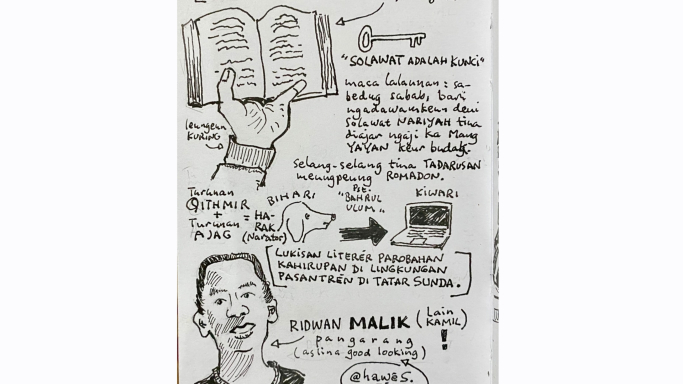 "SOLAWAT ADALAH KUNCI"
maca lalaunan : sa-
bedug sabab, bari
ngadawamkeun deui
solawat NARIYAH tina
diajar ngaji ka Mang
YAYAN keur budak.
leungeun
KURING
selang-selang tina TADARUSAN
meungpeung ROMADON.
Turunan
QITHMIR
+
Turunan
AJAG
= HA-
RAK
(Narator)
BIHARI
"BAHRUL
ULUM"
KIWARI
LUKISAN LITERÉR PAROBAHAN
KAHIRUPAN DI LINGKUNGAN
PASANTRÉN DI TATAR SUNDA.
RIDWAN MALIK (Lain
KAMIL)
!
pangarang
(aslina good looking)
@hawés.